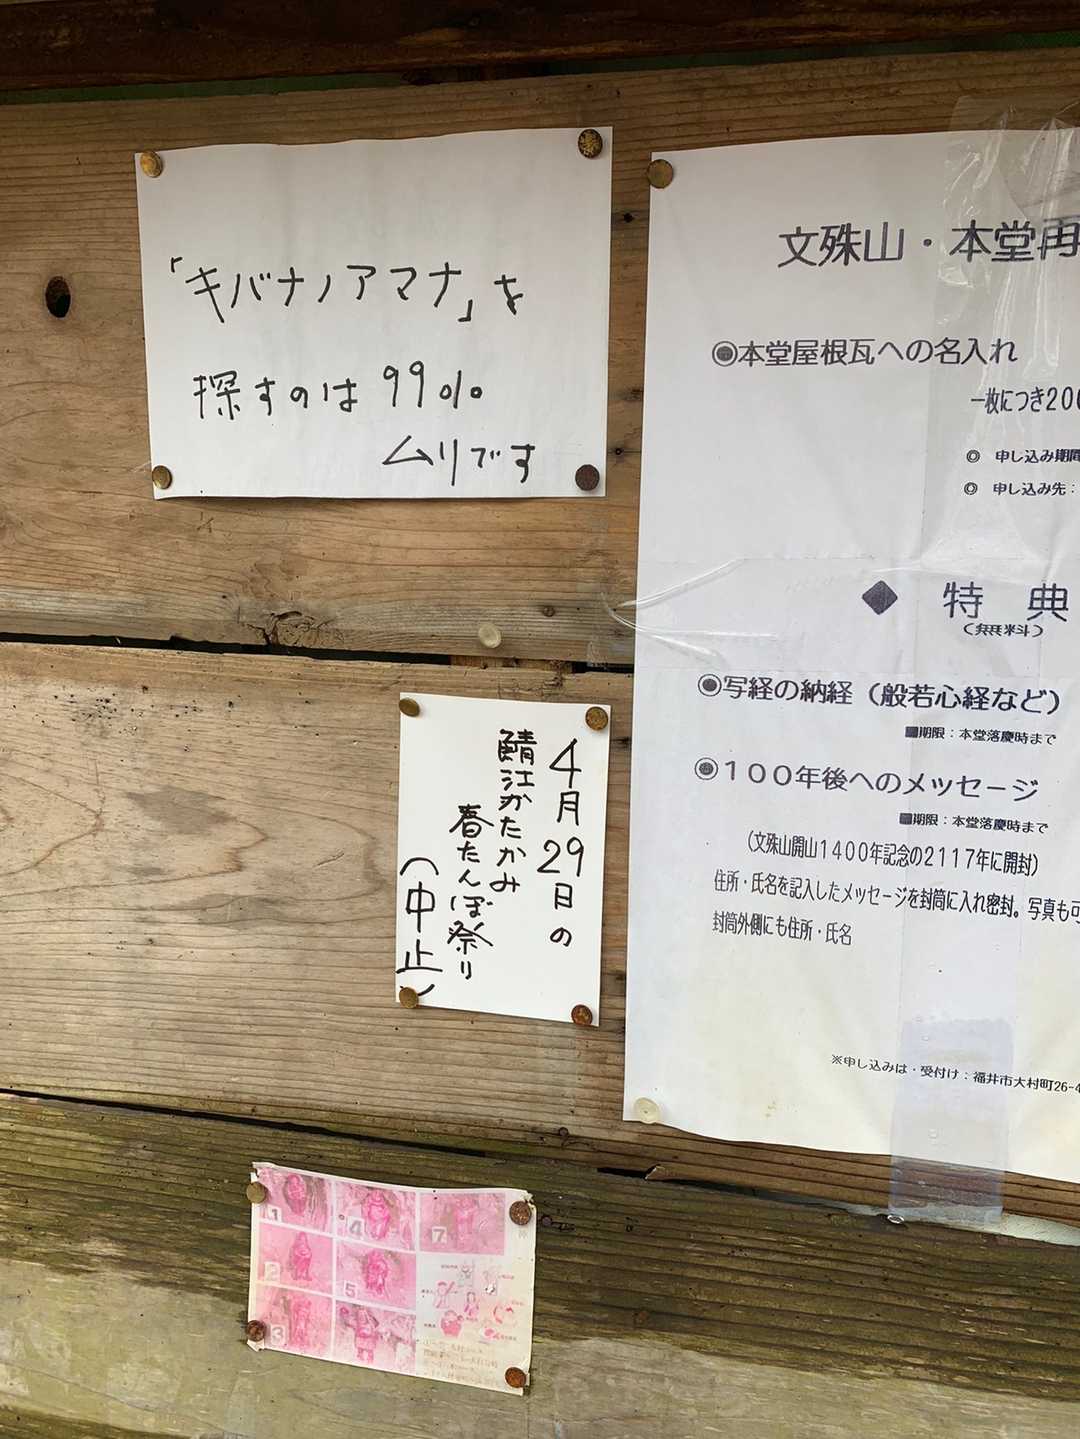 「キバナノアマナ」を
探すのは99%
ムリです
4月29日の
鯖江かたかみ
春たんぼ祭り
（中止）
文殊山・本堂再
◉本堂屋根瓦への名入れ
一枚につき200
◎ 申し込み期間
◎ 申し込み先：
◆ 特 典
（無料）
◉写経の納経（般若心経など）
■期限：本堂落慶時まで
◉１００年後へのメッセージ
■期限：本堂落慶時まで
（文殊山開山1400年記念の2117年に開封）
住所・氏名を記入したメッセージを封筒に入れ密封。写真も可
封筒外側にも住所・氏名
※申し込みは・受付け：福井市大村町26-4
1
4
7
2
5
3